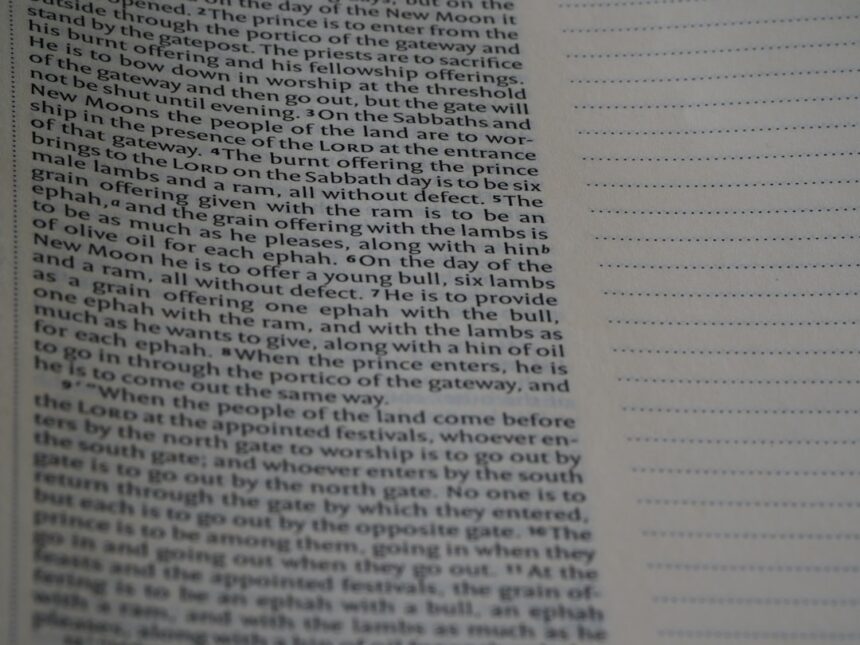 on the day of the New Moon it
opened. 2The prince is to enter from the
outside through the portico of the gateway and
stand by the gatepost. The priests are to sacrifice
his burnt offering and his fellowship offerings.
He is to bow down in worship at the threshold
of the gateway and then go out, but the gate will
not be shut until evening. 3On the Sabbaths and
New Moons the people of the land are to wor-
ship in the presence of the LORD at the entrance
of that gateway. 4The burnt offering the prince
brings to the LORD on the Sabbath day is to be six
male lambs and a ram, all without defect. 5The
grain offering given with the ram is to be an
ephah,a and the grain offering with the lambs is
to be as much as he pleases, along with a hinb
of olive oil for each ephah. 6On the day of the
New Moon he is to offer a young bull, six lambs
and a ram, all without defect. 7He is to provide
as a grain offering one ephah with the bull,
one ephah with the ram, and with the lambs as
much as he wants to give, along with a hin of oil
for each ephah. 8When the prince enters, he is
to go in through the portico of the gateway, and
he is to come out the same way.
9‘ “When the people of the land come before
the LORD at the appointed festivals, whoever en-
ters by the north gate to worship is to go out by
the south gate; and whoever enters by the south
gate is to go out by the north gate. No one is to
return through the gate by which they entered,
but each is to go out by the opposite gate. 10The
prince is to be among them, going in when they
go in and going out when they go out. 11At the
feasts and the appointed festivals, the grain of-
fering is to be an ephah with a bull, an ephah
with a ram, and with the lambs as much as he
pleases, along with a hin of oil